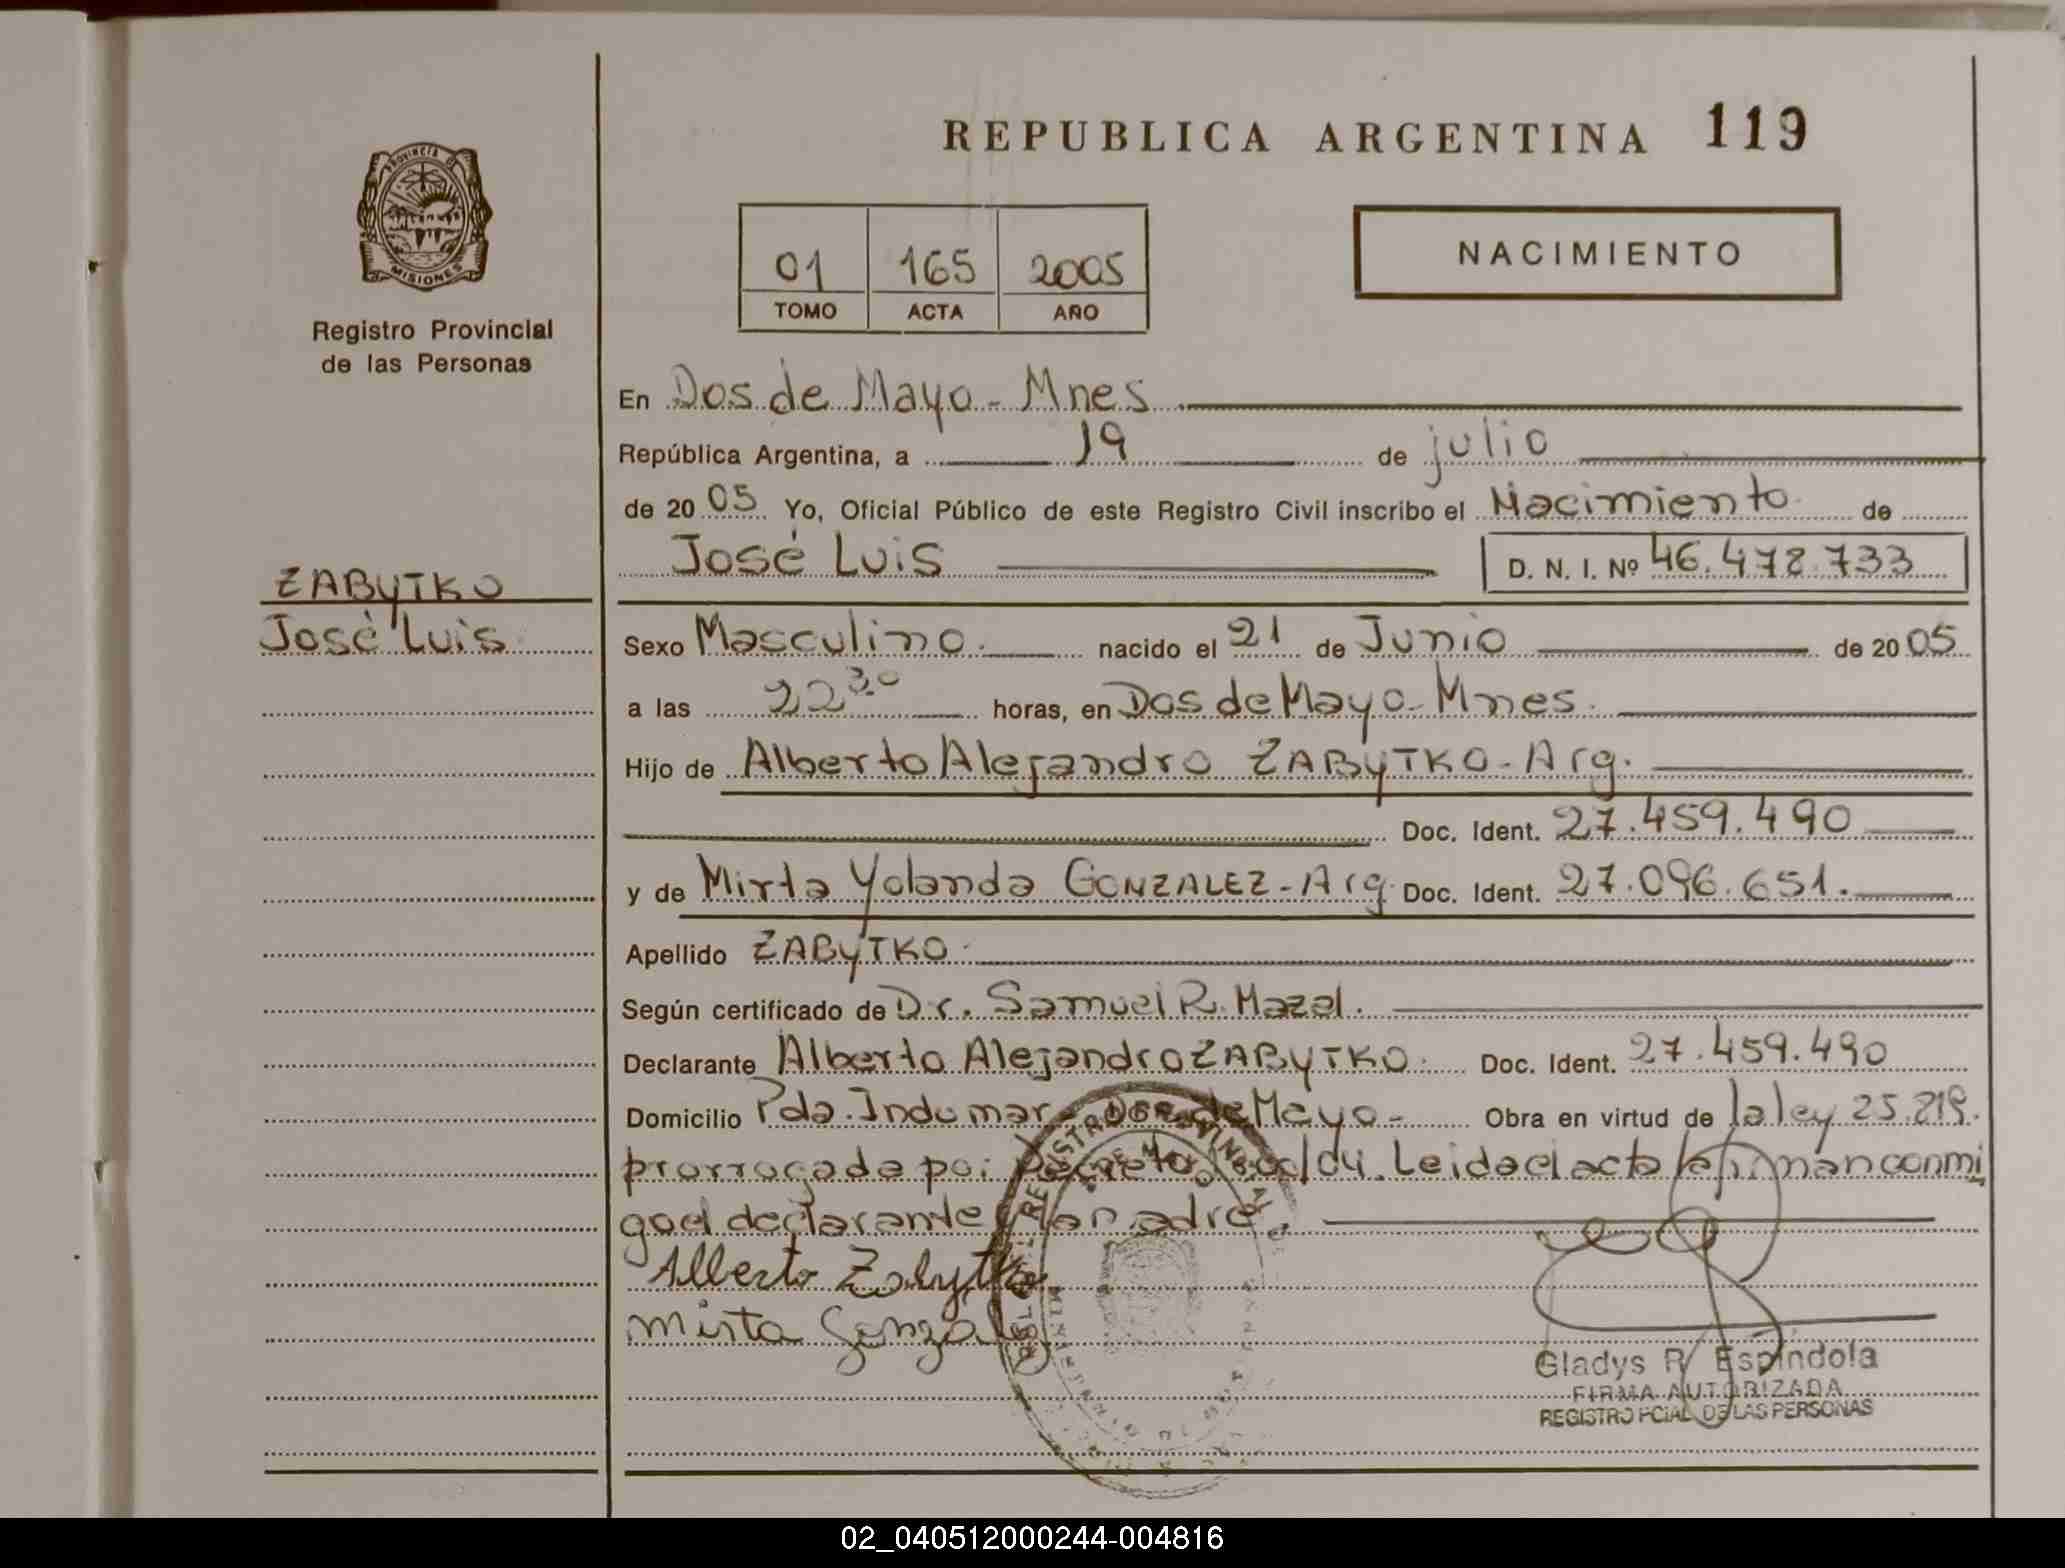 REPUBLICA ARGENTINA 119
PROVINCIA D
MISIONES
Registro Provincial
de las Personas
01 165 2005
TOMO ACTA AÑO
NACIMIENTO
En Dos de Mayo - Mnes
República Argentina, a 19 de julio
de 20 05 Yo, Oficial Público de este Registro Civil inscribo el Nacimiento de
José Luis D. N. I. Nº 46.478.733
ZABYTKO
José Luis
Sexo Masculino. nacido el 21 de Junio de 20 05
a las 22 30 horas, en Dos de Mayo - Mnes.
Hijo de Alberto Alejandro ZABYTKO - Arg.
Doc. Ident. 27.459.490
y de Mirta Yolanda GONZALEZ - Arg. Doc. Ident. 27.096.651.
Apellido ZABYTKO.
Según certificado de Dr. Samuel R. Mazal.
Declarante Alberto Alejandro ZABYTKO. Doc. Ident. 27.459.490
Domicilio Pda. Indumar - Dos de Mayo - Obra en virtud de la ley 25.819.
prorrogada por Decreto /04. Leida el acta la firman conmi
go el declarante
Alberto Zabytko
Mirta Gonzalez
Gladys R. Espíndola
FIRMA AUTORIZADA
REGISTRO PCIAL DE LAS PERSONAS
02_040512000244-004816